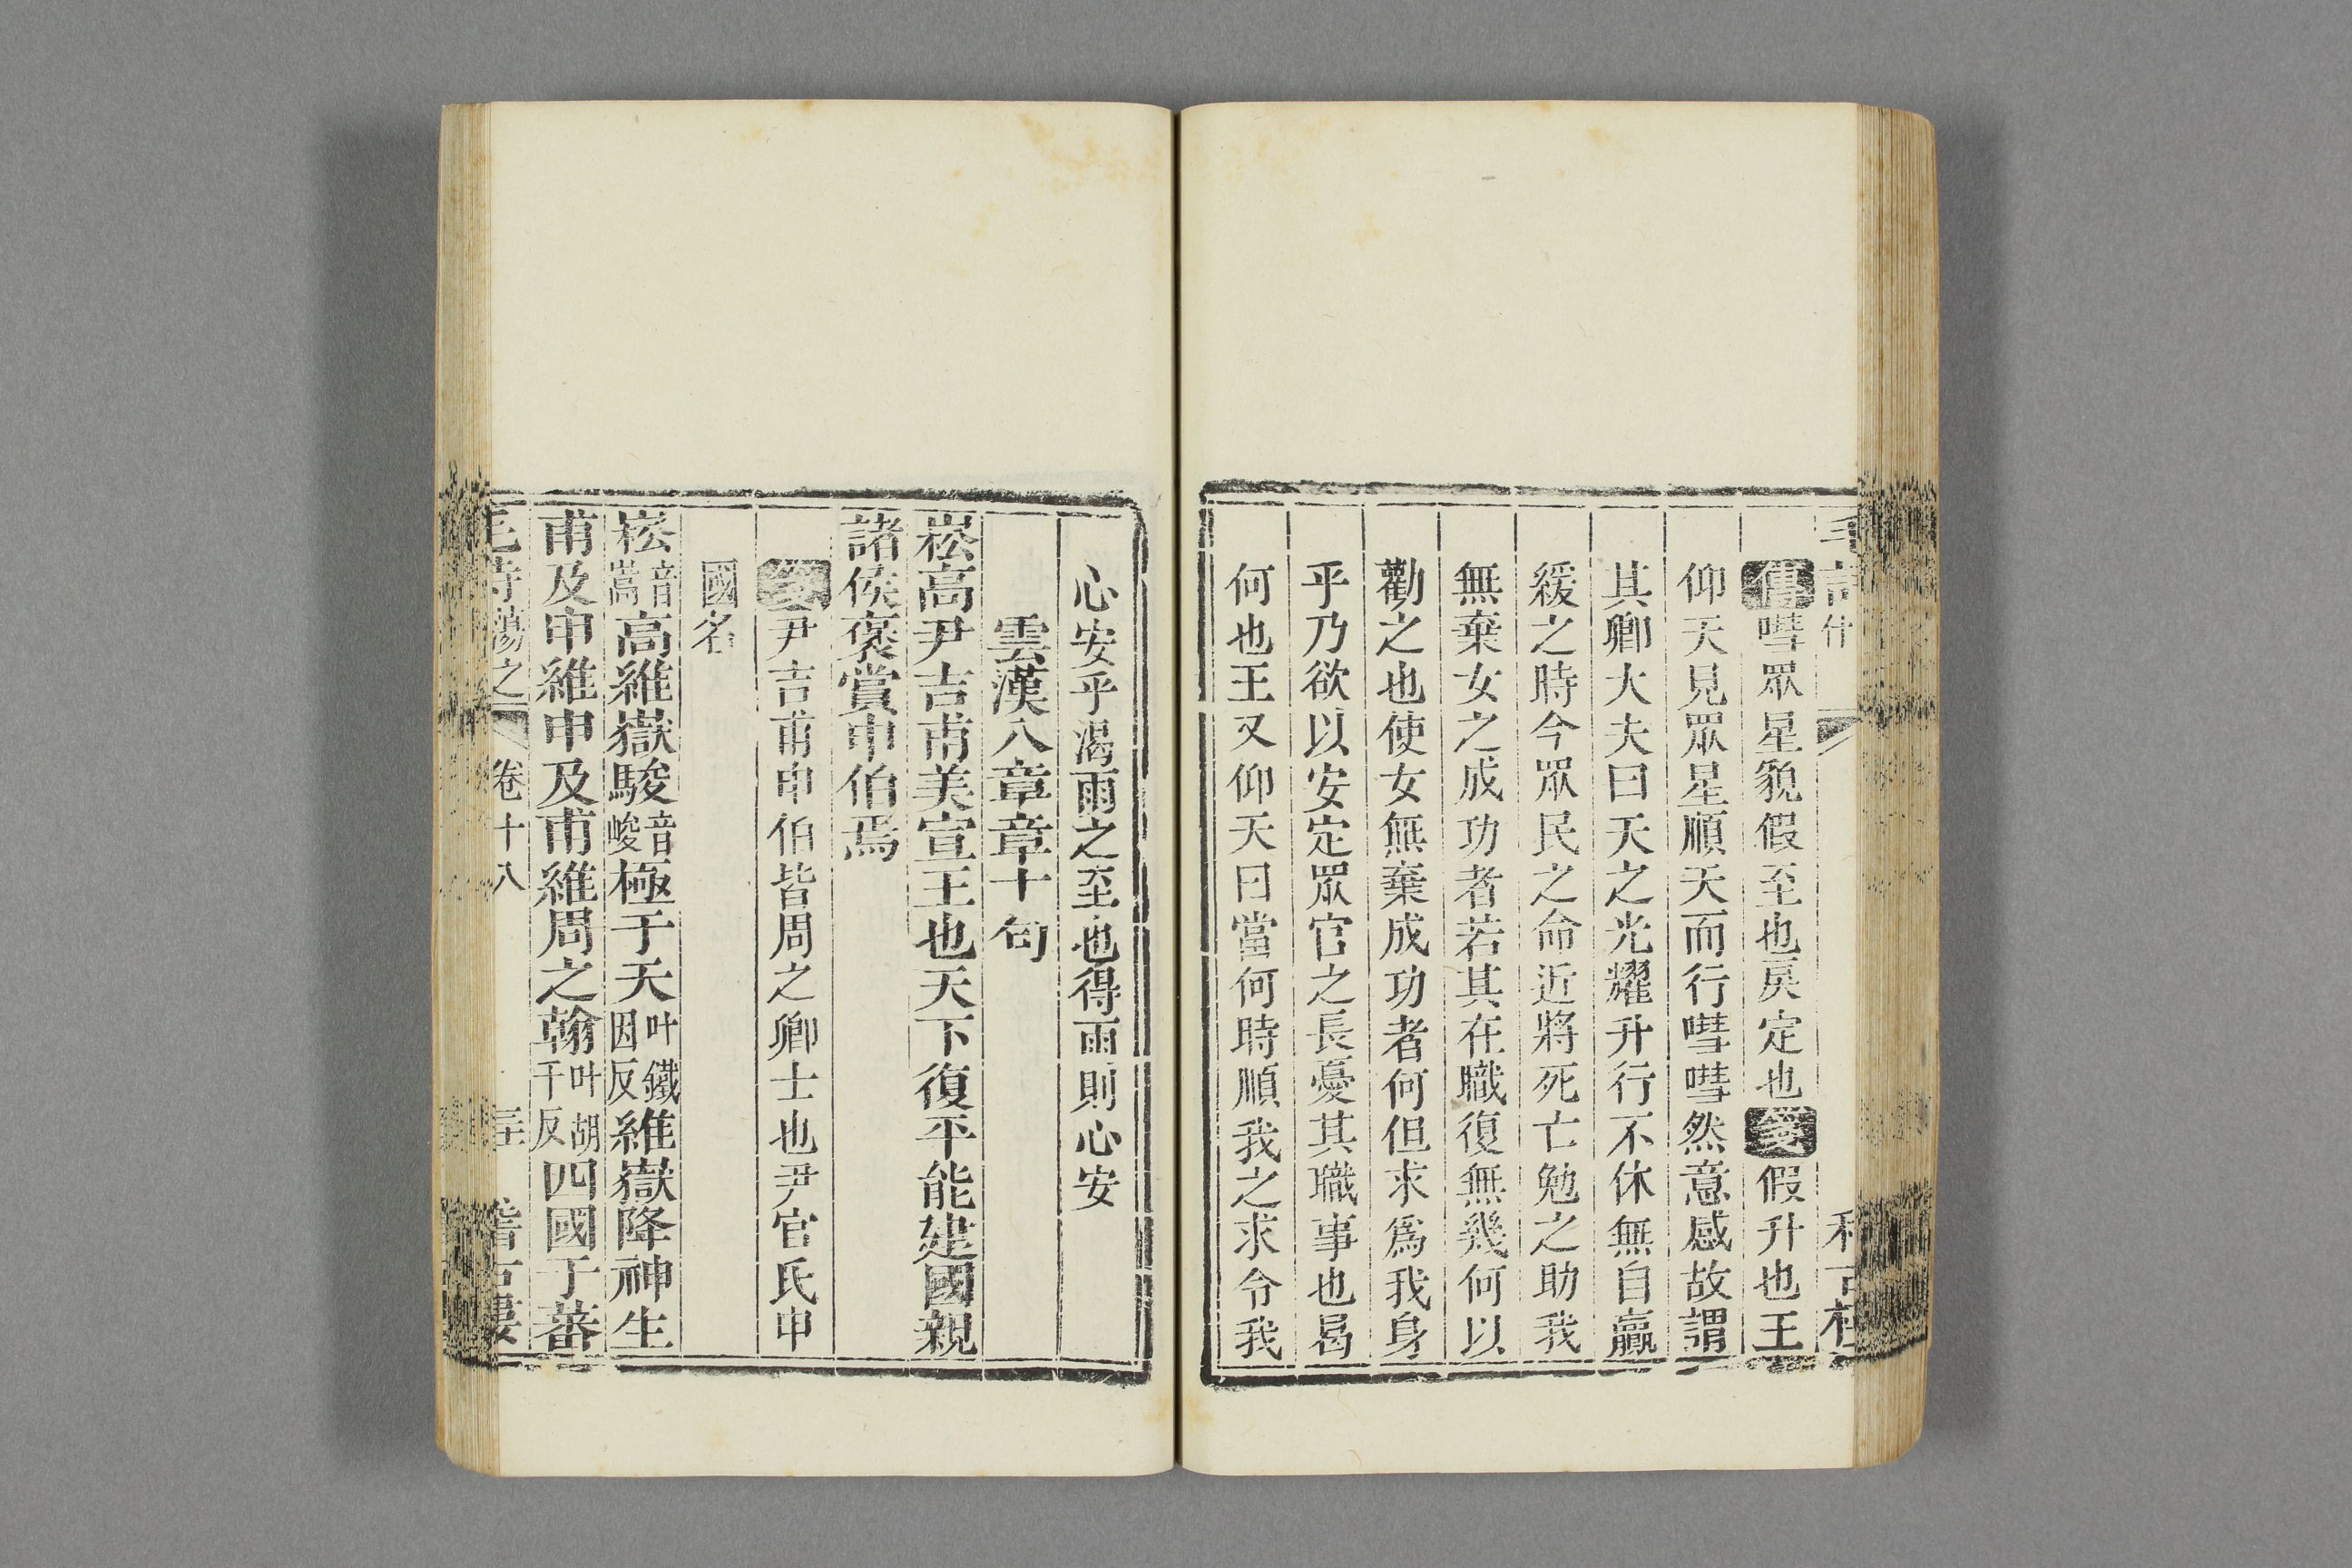 傳嘒眾星貌假至也戾定也箋假升也王
仰天見眾星順天而行嘒嘒然意感故謂
其卿大夫曰天之光耀升行不休無自贏
緩之時今眾民之命近將死亡勉之助我
無棄女之成功者若其在職復無幾何以
勸之也使女無棄成功者何但求爲我身
乎乃欲以安定眾官之長憂其職事也曷
何也王又仰天曰當何時順我之求令我
心安乎渴雨之至也得雨則心安
雲漢八章章十句
崧高尹吉甫美宣王也天下復平能建國親
諸侯褒賞申伯焉
箋尹吉甫申伯皆周之卿士也尹官氏申
國名
崧音嵩高維嶽駿音峻極于天叶鐵因反維嶽降神生
甫及申維申及甫維周之翰叶胡干反四國于蕃
毛詩蕩之 卷十八